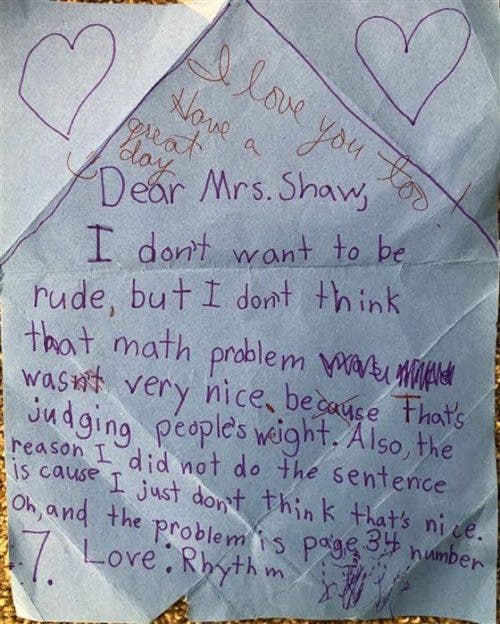 I love you too
Have a
great
day
Dear Mrs. Shaw,
I don't want to be
rude, but I don't think
that math problem
wasn't very nice, because That's
judging people's weight. Also, the
reason I did not do the sentence
is cause I just don't think that's nice.
Oh, and the problem is page 34 number
7. Love: Rhythm